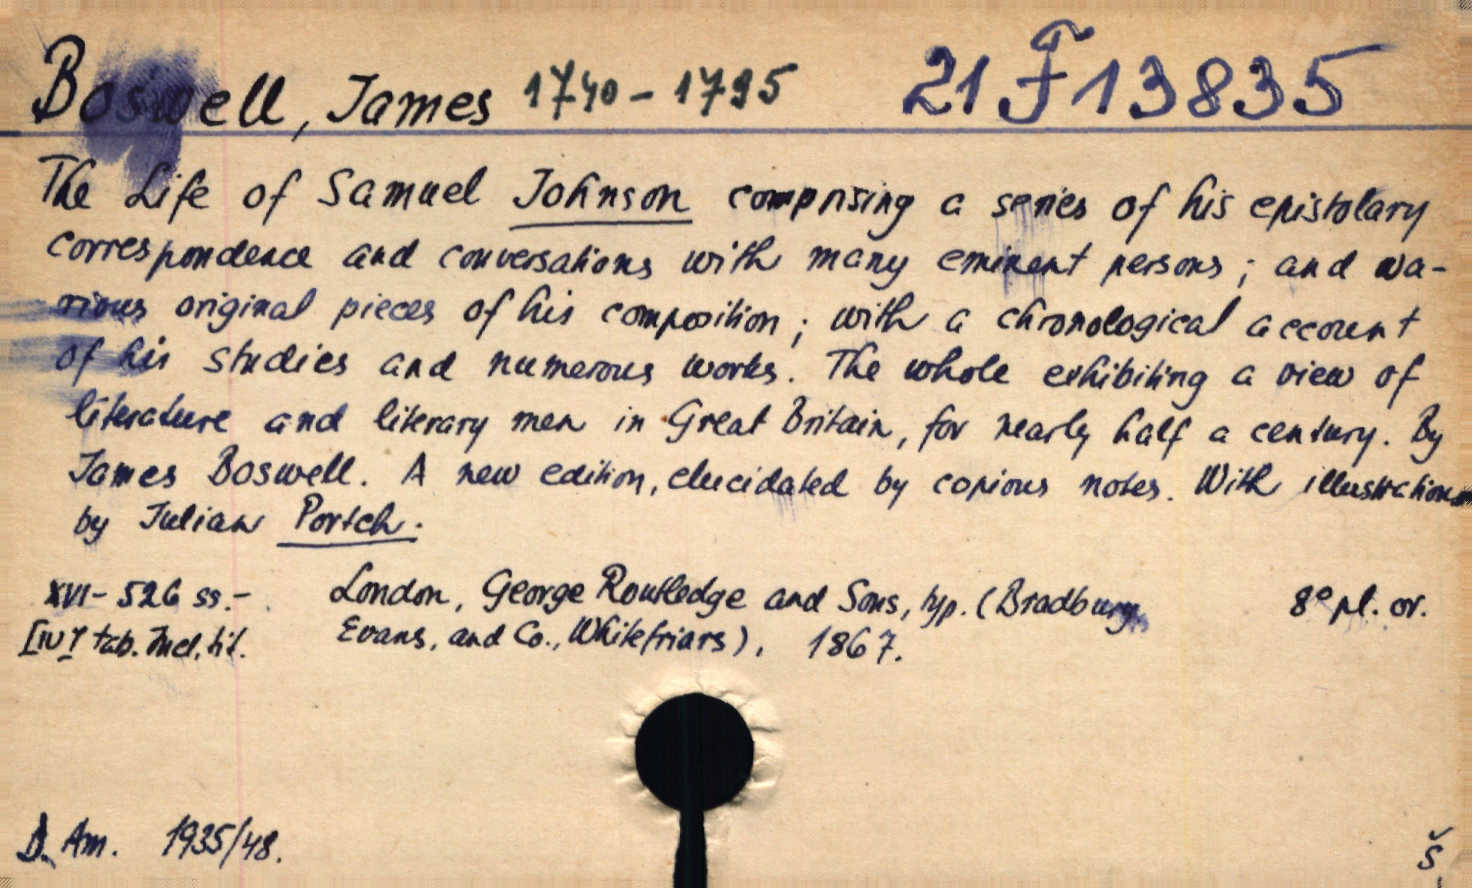 Boswell, James 1740-1795 21 F 13835
The Life of Samuel Johnson comprising a series of his epistolary
correspondence and conversations with many eminent persons; and va-
rious original pieces of his composition; with a chronological account
of his studies and numerous works. The whole exhibiting a view of
literature and literary men in Great Britain, for nearly half a century. By
James Boswell. A new edition, elucidated by copious notes. With illustrations
by Julian Portch.
XVI-526 ss.- London, George Routledge and Sons, typ. (Bradbury 8° pl. or.
[IV] tab. Incl. tit. Evans, and Co., Whitefriars), 1867.
D. Am. 1935/48. Š.